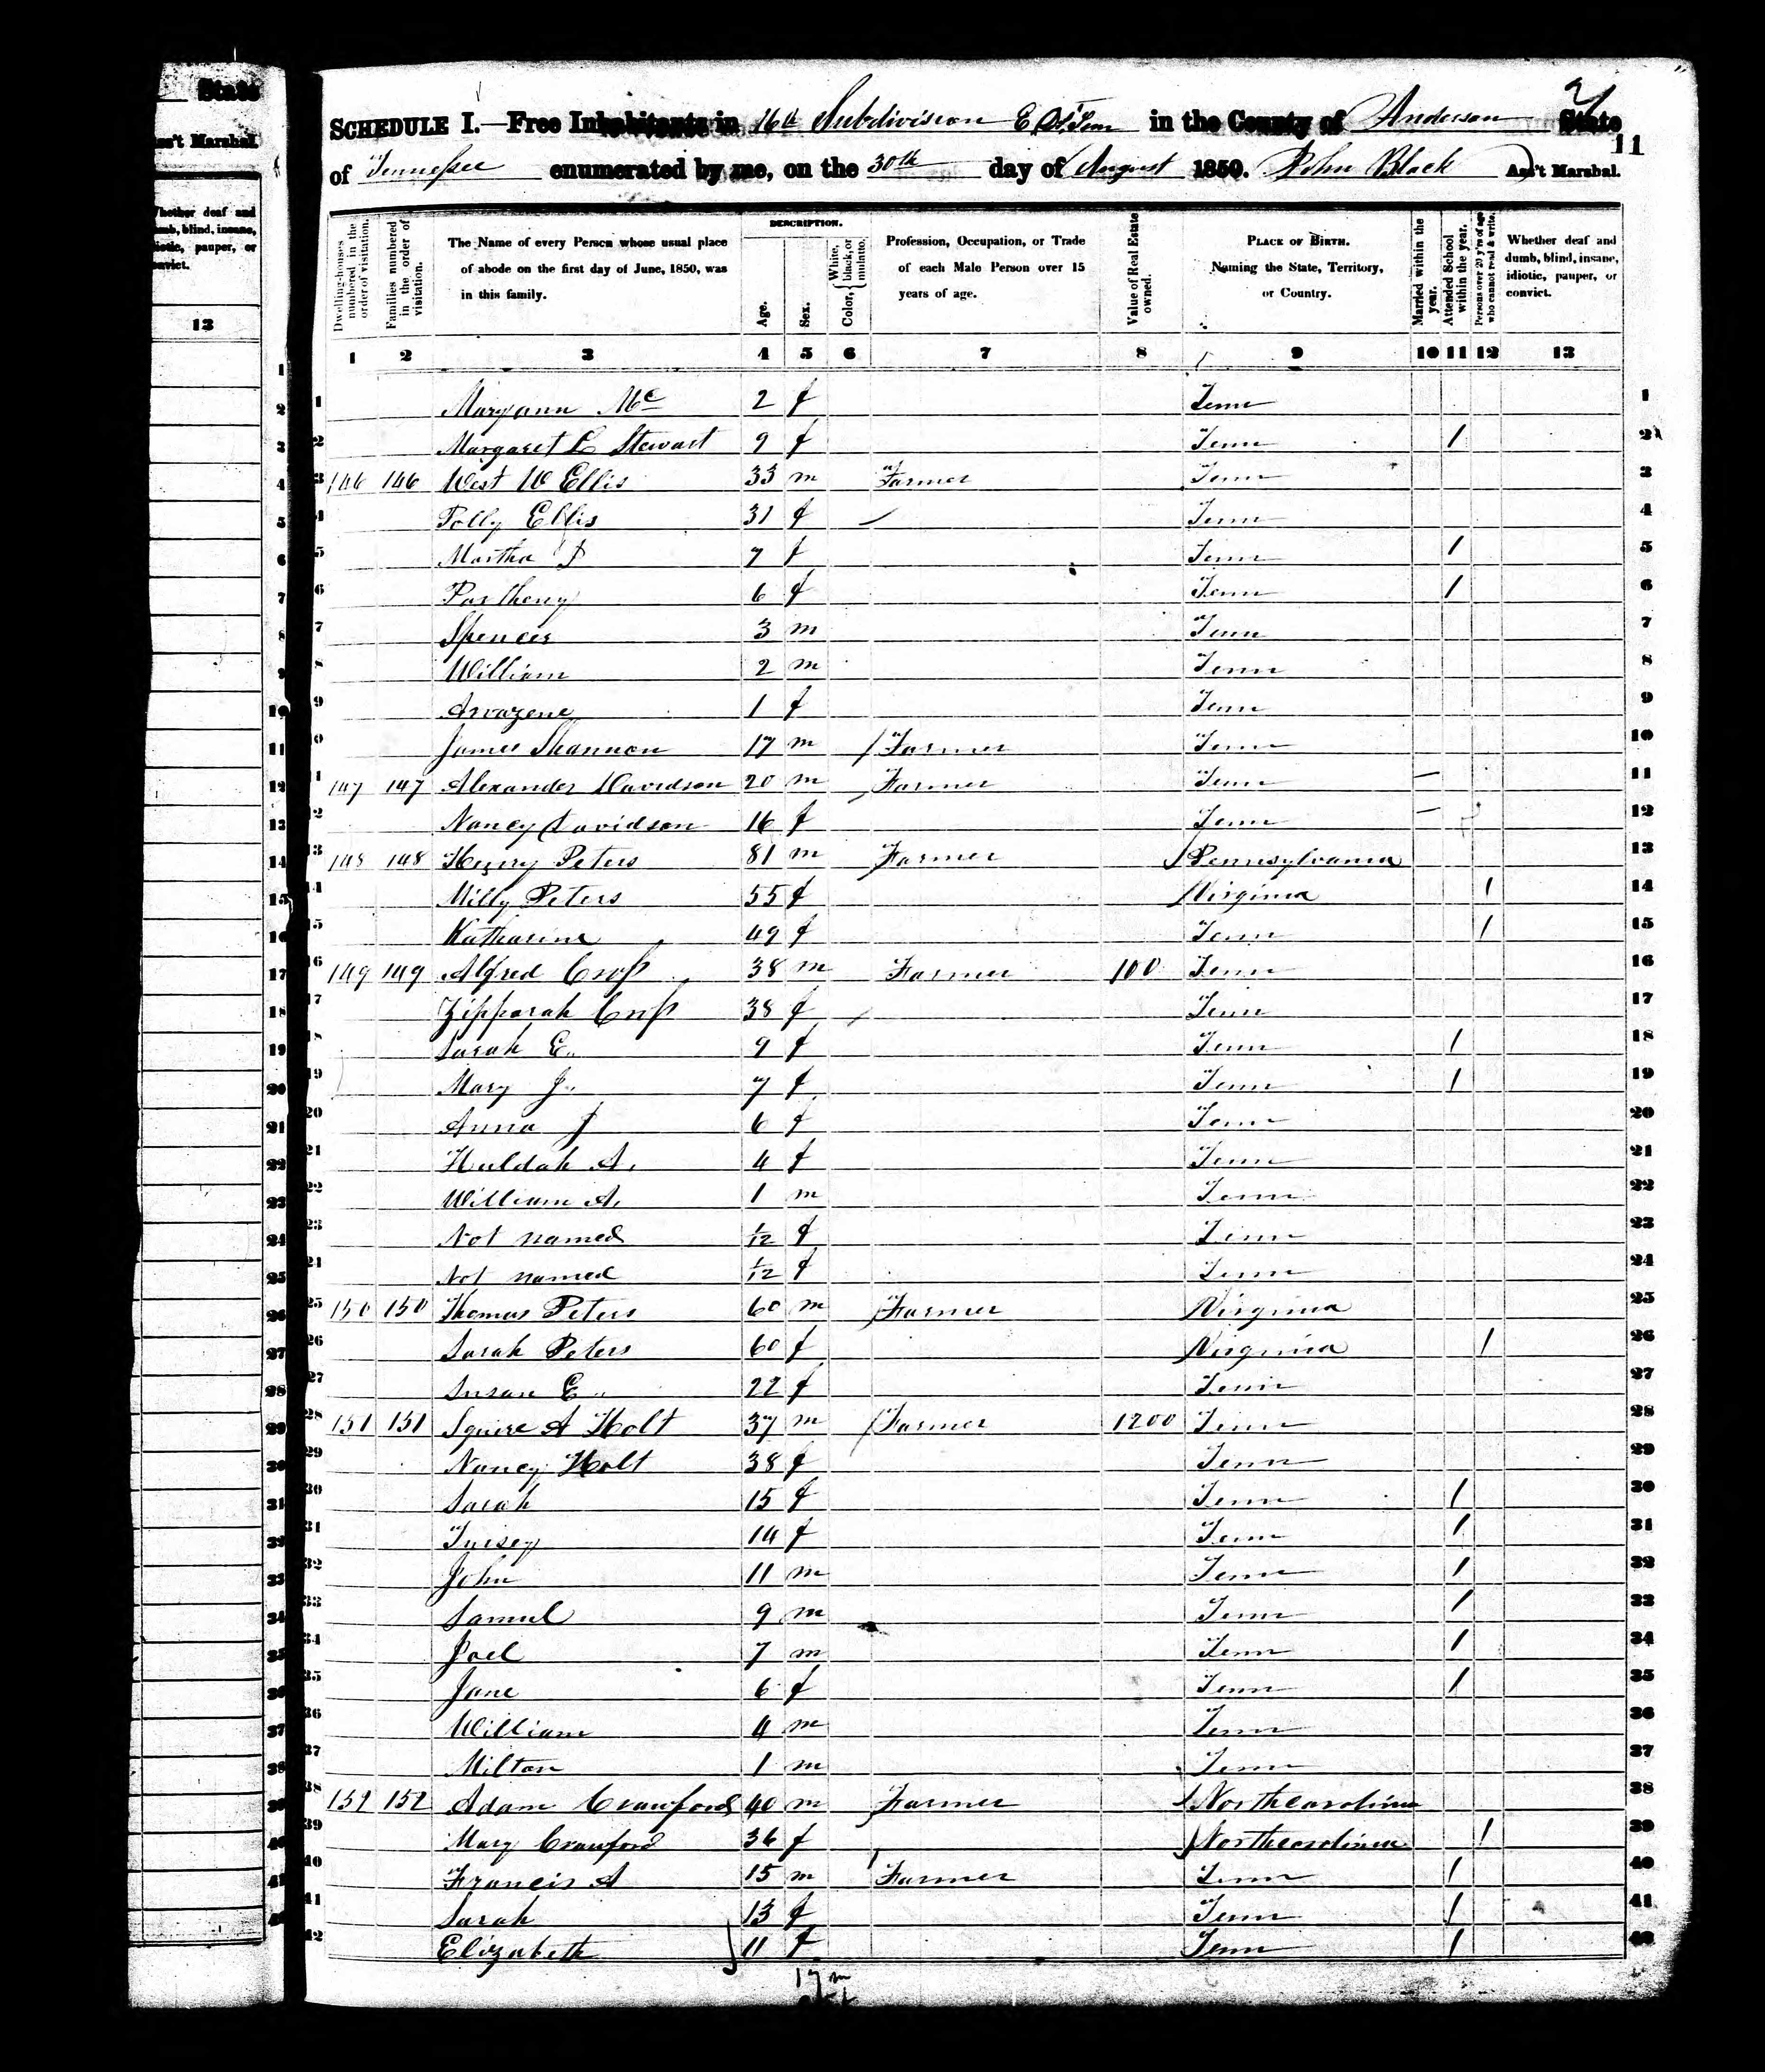 State
Ass't Marshal.
Whether deaf and
dumb, blind, insane,
idiotic, pauper, or
convict.
13
2
11
SCHEDULE I.—Free Inhabitants in 16th Subdivision E Dt Tenn in the County of Anderson State
of Tennessee enumerated by me, on the 30th day of August 1850. John Black Ass't Marshal.
Dwelling-houses numbered in the order of visitation.
Families numbered in the order of visitation.
The Name of every Person whose usual place
of abode on the first day of June, 1850, was
in this family.
DESCRIPTION.
Age.
Sex.
Color, { White, black, or mulatto.
Profession, Occupation, or Trade
of each Male Person over 15
years of age.
Value of Real Estate owned.
PLACE OF BIRTH.
Naming the State, Territory,
or Country.
Married within the year.
Attended School within the year.
Persons over 20 y'rs of age who cannot read & write.
Whether deaf and
dumb, blind, insane,
idiotic, pauper, or
convict.
1 2 3 4 5 6 7 8 9 10 11 12 13
1 Maryann Mc 2 f Tenn 1
2 Margaret L Stewart 9 f Tenn / 2
3 146 146 West W Ellis 33 m Farmer Tenn 3
4 Polly Ellis 31 f Tenn 4
5 Martha J 7 f Tenn / 5
6 Partheny 6 f Tenn / 6
7 Spencer 3 m Tenn 7
8 William 2 m Tenn 8
9 Arvazene 1 f Tenn 9
10 James Shannon 17 m Farmer Tenn 10
11 147 147 Alexander Davidson 20 m Farmer Tenn — 11
12 Nancy Davidson 16 f Tenn — 12
13 148 148 Henry Peters 81 m Farmer Pennsylvania 13
14 Milly Peters 55 f Virginia / 14
15 Katharine 49 f Tenn / 15
16 149 149 Alfred Cross 38 m Farmer 100 Tenn 16
17 Zipporah Cross 38 f Tenn 17
18 Sarah E.. 9 f Tenn / 18
19 Mary J.. 7 f Tenn / 19
20 Anna J 6 f Tenn 20
21 Huldah A. 4 f Tenn 21
22 William A. 1 m Tenn 22
23 Not named 1/12 f Tenn 23
24 Not named 1/12 f Tenn 24
25 150 150 Thomas Peters 60 m Farmer Virginia 25
26 Sarah Peters 60 f Virginia / 26
27 Susan E.. 22 f Tenn 27
28 151 151 Squire A Holt 37 m Farmer 1200 Tenn 28
29 Nancy Holt 38 f Tenn 29
30 Sarah 15 f Tenn / 30
31 14 f Tenn / 31
32 John 11 m Tenn / 32
33 Samuel 9 m Tenn / 33
34 Joel 7 m Tenn / 34
35 Jane 6 f Tenn / 35
36 William 4 m Tenn 36
37 Milton 1 m Tenn 37
38 152 152 Adam Crawford 40 m Farmer Northcarolina 38
39 Mary Crawford 36 f Northcarolina / 39
40 Francis A 15 m Farmer Tenn / 40
41 Sarah 13 f Tenn / 41
42 Elizabeth 11 f Tenn / 42
17 m